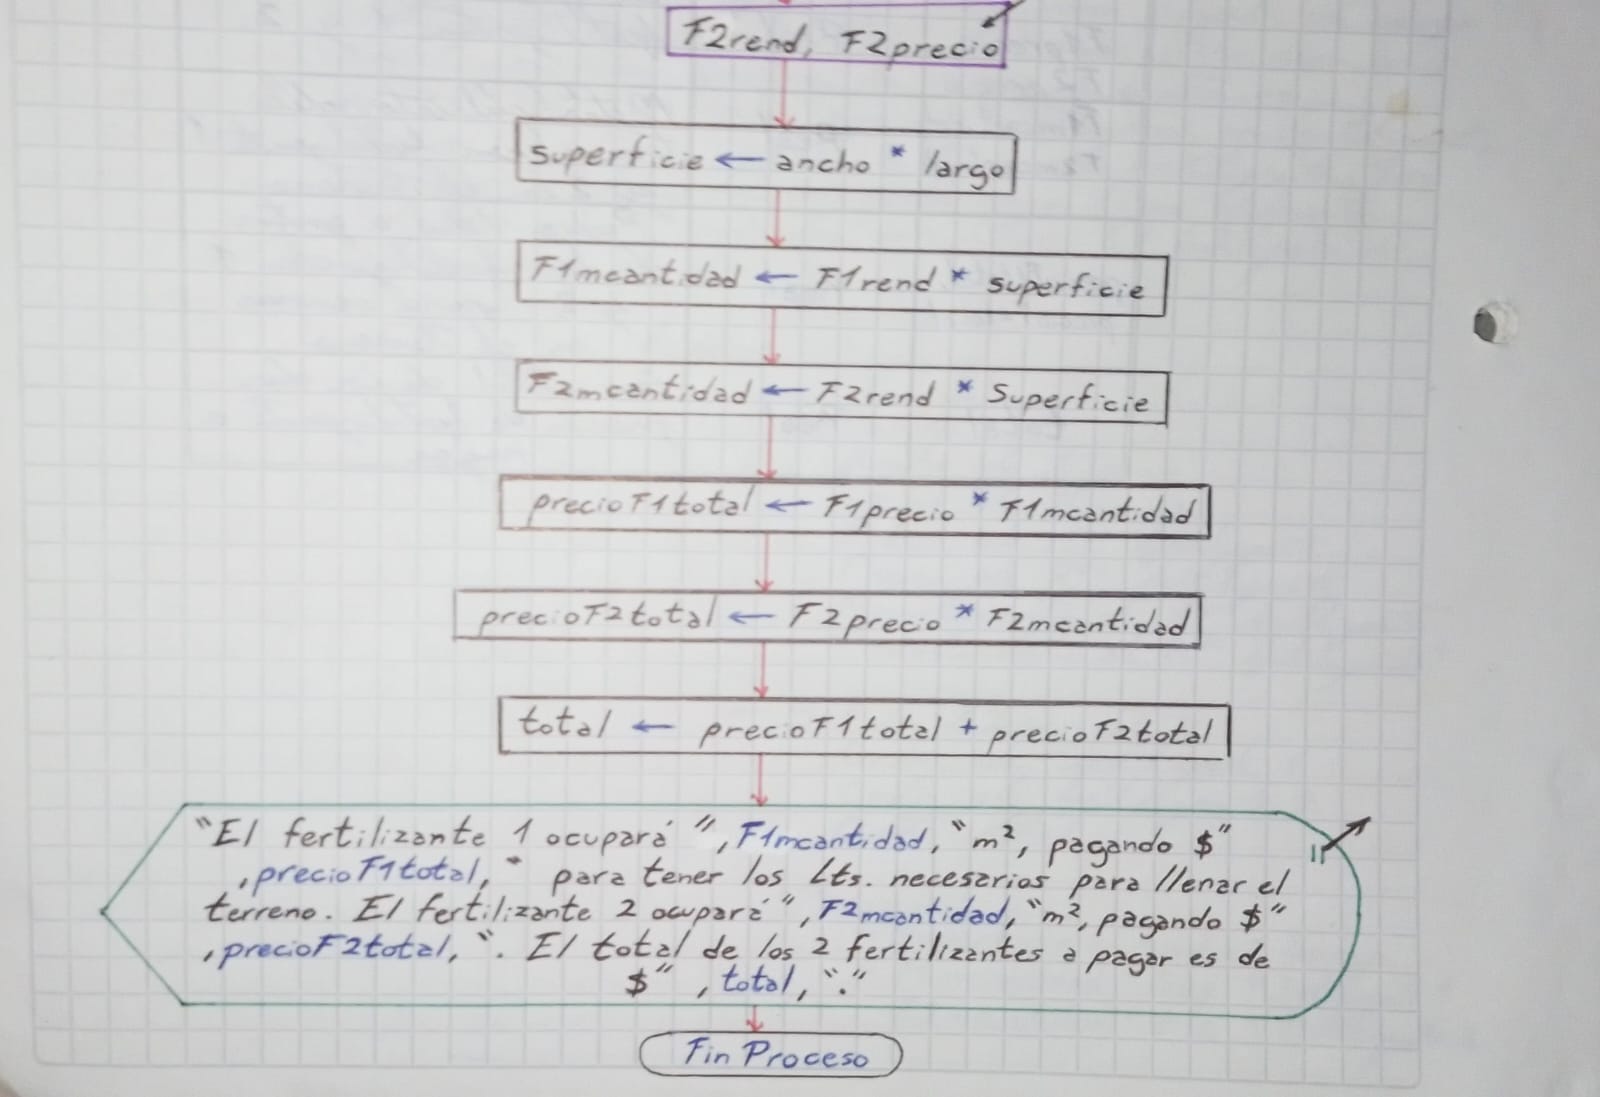 F2rend, F2precio
superficie ← ancho * largo
F1mcantidad ← F1rend * superficie
F2mcantidad ← F2rend * Superficie
precioF1total ← F1precio * F1mcantidad
precioF2total ← F2precio * F2mcantidad
total ← precioF1total + precioF2total
"El fertilizante 1 ocupará ", F1mcantidad, "m², pagando $"
, precioF1total, " para tener los Lts. necesarios para llenar el
terreno. El fertilizante 2 ocupará", F2mcantidad, "m², pagando $"
, precioF2total, ". El total de los 2 fertilizantes a pagar es de
$" , total, "."
Fin Proceso